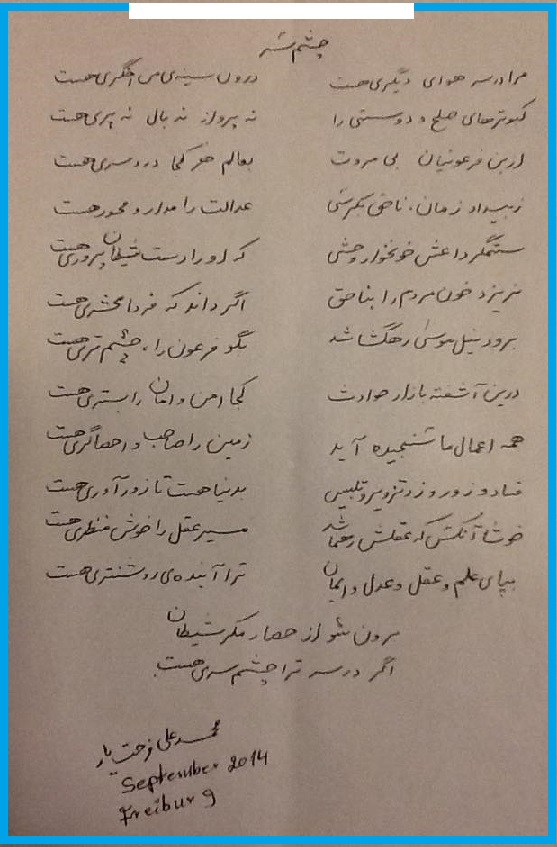 چشم سَر
مرا در سر هوای دیگری هست درون سینه‌ی من اخگری هست
کبوترهای صلح و دوستی را نه پرواز نه بال نه پری هست
ازین فرعونیان بی مروت بعالم هر کجا دردسری هست
زبیداد زمان، ناحق عدالت را مدار و محور هست
ستمگر داعش خونخوار وحشی که او را دست شیطان پروری هست
نریزد خون مردم را بناحق اگر داند که فردا محشری هست
برود نیل موسی رهگشا شد نگو فرعون را، چشم تری هست
درین آشفته بازار حوادث کجا امن و امان را بستری هست
همه اعمال ما سنجیده آید زمین را صاحب و احصاگری هست
فساد و زور و زر تزویر و تلبیس بدنیا هست تا زورآوری هست
خوشا آنکس که عقلش رهنما شد مسیر عقل را خوش منظری هست
بپای علم و عقل و عدل و ایمان ترا آینده‌ی روشنتری هست
برون شو از حصار مکر شیطان
اگر در سر ترا چشم سری هست
محمد علی فرحت یار
September 2014
Freiburg